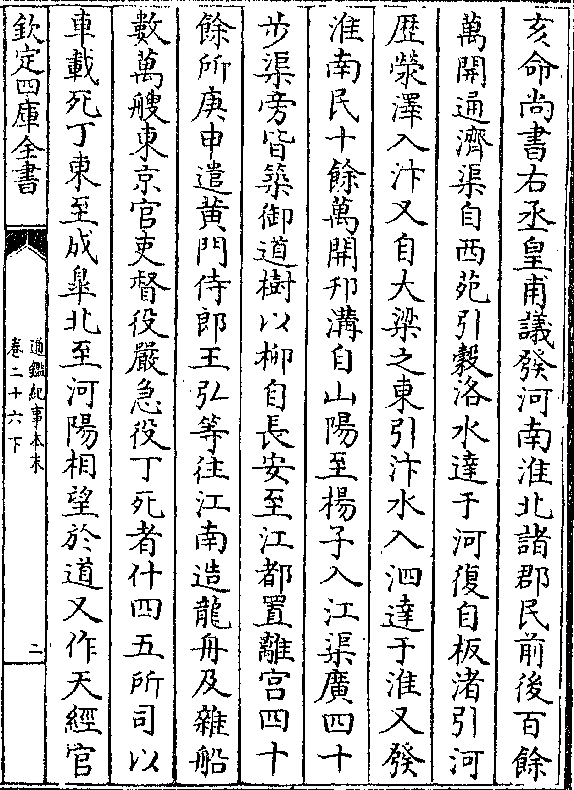 亥命尚書右丞皇甫議發河南淮北諸郡民前後百餘
萬開通濟渠自西苑引穀洛水達于河復自板渚引河
歴滎澤入汴又自大梁之東引汴水入泗達于淮又發
淮南民十餘萬開邗溝自山陽至楊子入江渠廣四十
步渠旁皆築御道樹以柳自長安至江都置離宫四十
餘所庚申遣黄門侍郎王弘等往江南造龍舟及雜船
數萬艘東京官吏督役嚴急役丁死者什四五所司以
車載死丁東至成臯北至河陽相望於道又作天經宫
欽定四庫全書
通鑑紀事本末
卷二十六下
二